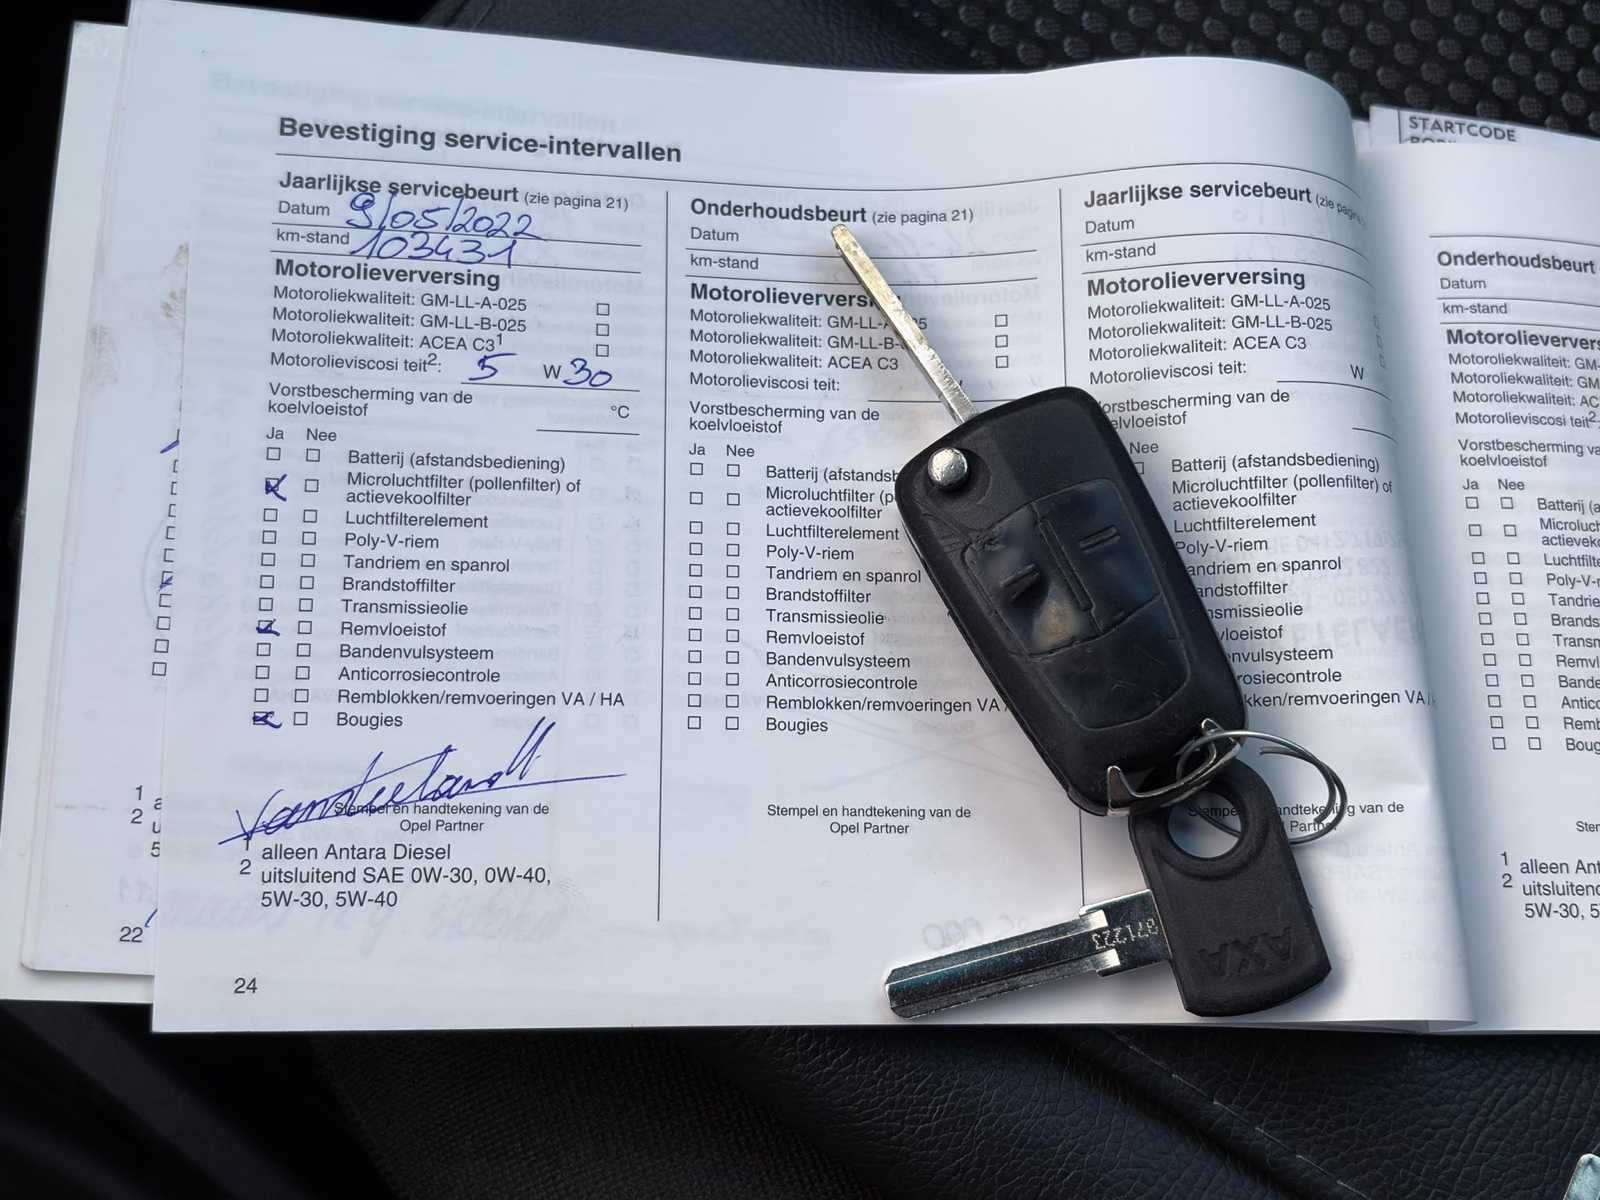 Bevestiging service-intervallen
Jaarlijkse servicebeurt (zie pagina 21)
Datum 9/05/2022
km-stand 103431
Motorolieverversing
Motoroliekwaliteit: GM-LL-A-025
Motoroliekwaliteit: GM-LL-B-025
Motoroliekwaliteit: ACEA C3¹
Motorolieviscosi teit²: 5 W 30
Vorstbescherming van de
koelvloeistof °C
Ja Nee
Batterij (afstandsbediening)
Microluchtfilter (pollenfilter) of
actievekoolfilter
Luchtfilterelement
Poly-V-riem
Tandriem en spanrol
Brandstoffilter
Transmissieolie
Remvloeistof
Bandenvulsysteem
Anticorrosiecontrole
Remblokken/remvoeringen VA / HA
Bougies
Stempel en handtekening van de
Opel Partner
1 alleen Antara Diesel
2 uitsluitend SAE 0W-30, 0W-40,
5W-30, 5W-40
24
22
Onderhoudsbeurt (zie pagina 21)
Datum
km-stand
Motorolieversersing
Motoroliekwaliteit: GM-LL-A-025
Motoroliekwaliteit: GM-LL-B-
Motoroliekwaliteit: ACEA C3
Motorolieviscosi teit:
Vorstbescherming van de
koelvloeistof
Ja Nee
Batterij (afstandsb
Microluchtfilter (p
actievekoolfilter
Luchtfilterelement
Poly-V-riem
Tandriem en spanrol
Brandstoffilter
Transmissieolie
Remvloeistof
Bandenvulsysteem
Anticorrosiecontrole
Remblokken/remvoeringen VA
Bougies
Stempel en handtekening van de
Opel Partner
Jaarlijkse servicebeurt (zie pagina
Datum
km-stand
Motorolieverversing
Motoroliekwaliteit: GM-LL-A-025
Motoroliekwaliteit: GM-LL-B-025
Motoroliekwaliteit: ACEA C3
Motorolieviscosi teit: W
orstbescherming van de
elvloeistof
Nee
Batterij (afstandsbediening)
Microluchtfilter (pollenfilter) of
actievekoolfilter
Luchtfilterelement
Poly-V-riem
andriem en spanrol
andstoffilter
nsmissieolie
vloeistof
nvulsysteem
rosiecontrole
kken/remvoeringen VA/
Stempe andtekening van de
Partner
STARTCODE
Onderhoudsbeurt
Datum
km-stand
Motorolieververs
Motoroliekwaliteit: GM-
Motoroliekwaliteit: GM
Motoroliekwaliteit: AC
Motorolieviscosi teit²:
Vorstbescherming va
koelvloeistof
Ja Nee
Batterij (a
Microluch
actieveko
Luchtfilte
Poly-V-r
Tandrie
Brands
Transm
Remvl
Bande
Antico
Remb
Boug
Ster
1 alleen Ant
2 uitsluitend
5W-30, 5
AXA
971223